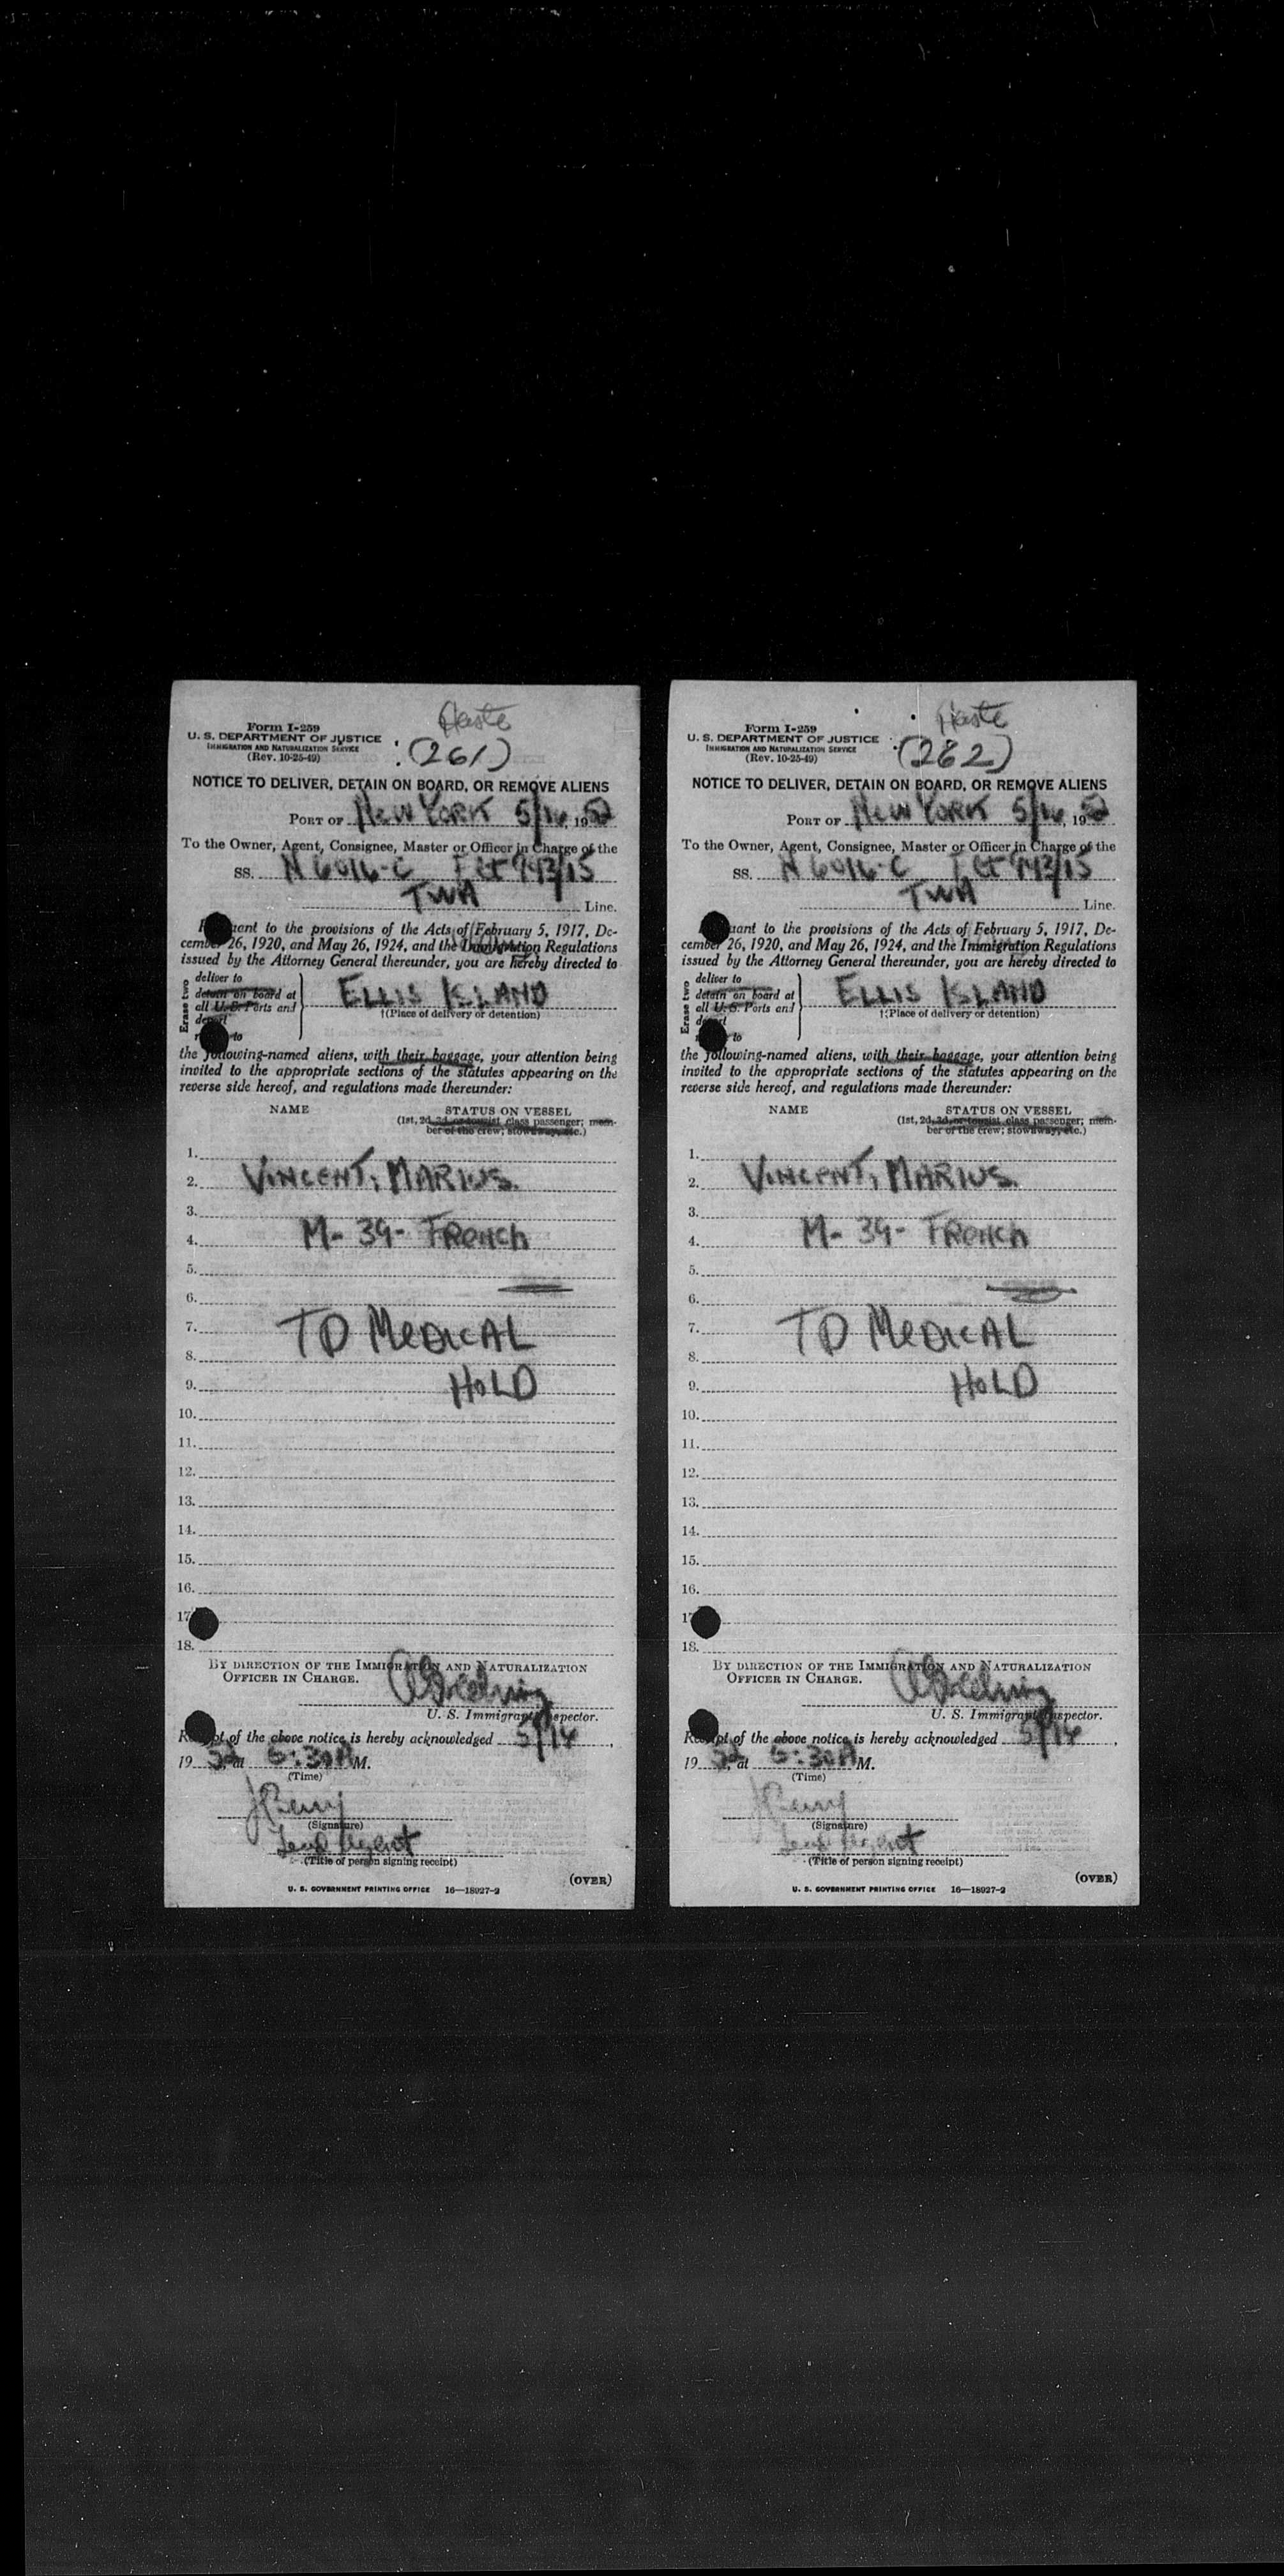 Haste
Form I-259
U. S. DEPARTMENT OF JUSTICE
IMMIGRATION AND NATURALIZATION SERVICE
(Rev. 10-25-49)
(261)
NOTICE TO DELIVER, DETAIN ON BOARD, OR REMOVE ALIENS
PORT OF NEW YORK 5/14, 1952
To the Owner, Agent, Consignee, Master or Officer in Charge of the
SS. N 6016-C Flt 943/15
TWA Line.
to the provisions of the Acts of February 5, 1917, De-
cember 26, 1920, and May 26, 1924, and the Immigration Regulations
issued by the Attorney General thereunder, you are hereby directed to
Erase two
deliver to
detain on board at
all U. S. Ports and
deport
to
ELLIS ISLAND
†(Place of delivery or detention)
the following-named aliens, with their baggage, your attention being
invited to the appropriate sections of the statutes appearing on the
reverse side hereof, and regulations made thereunder:
NAME STATUS ON VESSEL
(1st, 2d, 3d, or tourist class passenger; mem-
ber of the crew; stowaway, etc.)
1.
2. VINCENT, MARIUS.
3.
4. M- 39- FRENCH
5.
6.
7. TD MEDICAL
8.
9. HOLD
10.
11.
12.
13.
14.
15.
16.
17
18.
BY DIRECTION OF THE IMMIGRATION AND NATURALIZATION
OFFICER IN CHARGE.
U. S. Immigrant Inspector.
Receipt of the above notice is hereby acknowledged 5/14,
1952, at 5:30 A M.
(Time)
(Signature)
Lead Agent
(Title of person signing receipt)
(OVER)
U. S. GOVERNMENT PRINTING OFFICE 16—18927-2
Haste
Form I-259
U. S. DEPARTMENT OF JUSTICE
IMMIGRATION AND NATURALIZATION SERVICE
(Rev. 10-25-49)
(262)
NOTICE TO DELIVER, DETAIN ON BOARD, OR REMOVE ALIENS
PORT OF NEW YORK 5/14, 1952
To the Owner, Agent, Consignee, Master or Officer in Charge of the
SS. N 6016-C Flt 943/15
TWA Line.
to the provisions of the Acts of February 5, 1917, De-
cember 26, 1920, and May 26, 1924, and the Immigration Regulations
issued by the Attorney General thereunder, you are hereby directed to
Erase two
deliver to
detain on board at
all U. S. Ports and
deport
to
ELLIS ISLAND
†(Place of delivery or detention)
the following-named aliens, with their baggage, your attention being
invited to the appropriate sections of the statutes appearing on the
reverse side hereof, and regulations made thereunder:
NAME STATUS ON VESSEL
(1st, 2d, 3d, or tourist class passenger; mem-
ber of the crew; stowaway, etc.)
1.
2. VINCENT, MARIUS.
3.
4. M- 39- FRENCH
5.
6.
7. TD MEDICAL
8.
9. HOLD
10.
11.
12.
13.
14.
15.
16.
17
18.
BY DIRECTION OF THE IMMIGRATION AND NATURALIZATION
OFFICER IN CHARGE.
U. S. Immigrant Inspector.
Receipt of the above notice is hereby acknowledged 5/14,
1952, at 5:30 A M.
(Time)
(Signature)
Lead Agent
(Title of person signing receipt)
(OVER)
U. S. GOVERNMENT PRINTING OFFICE 16—18927-2